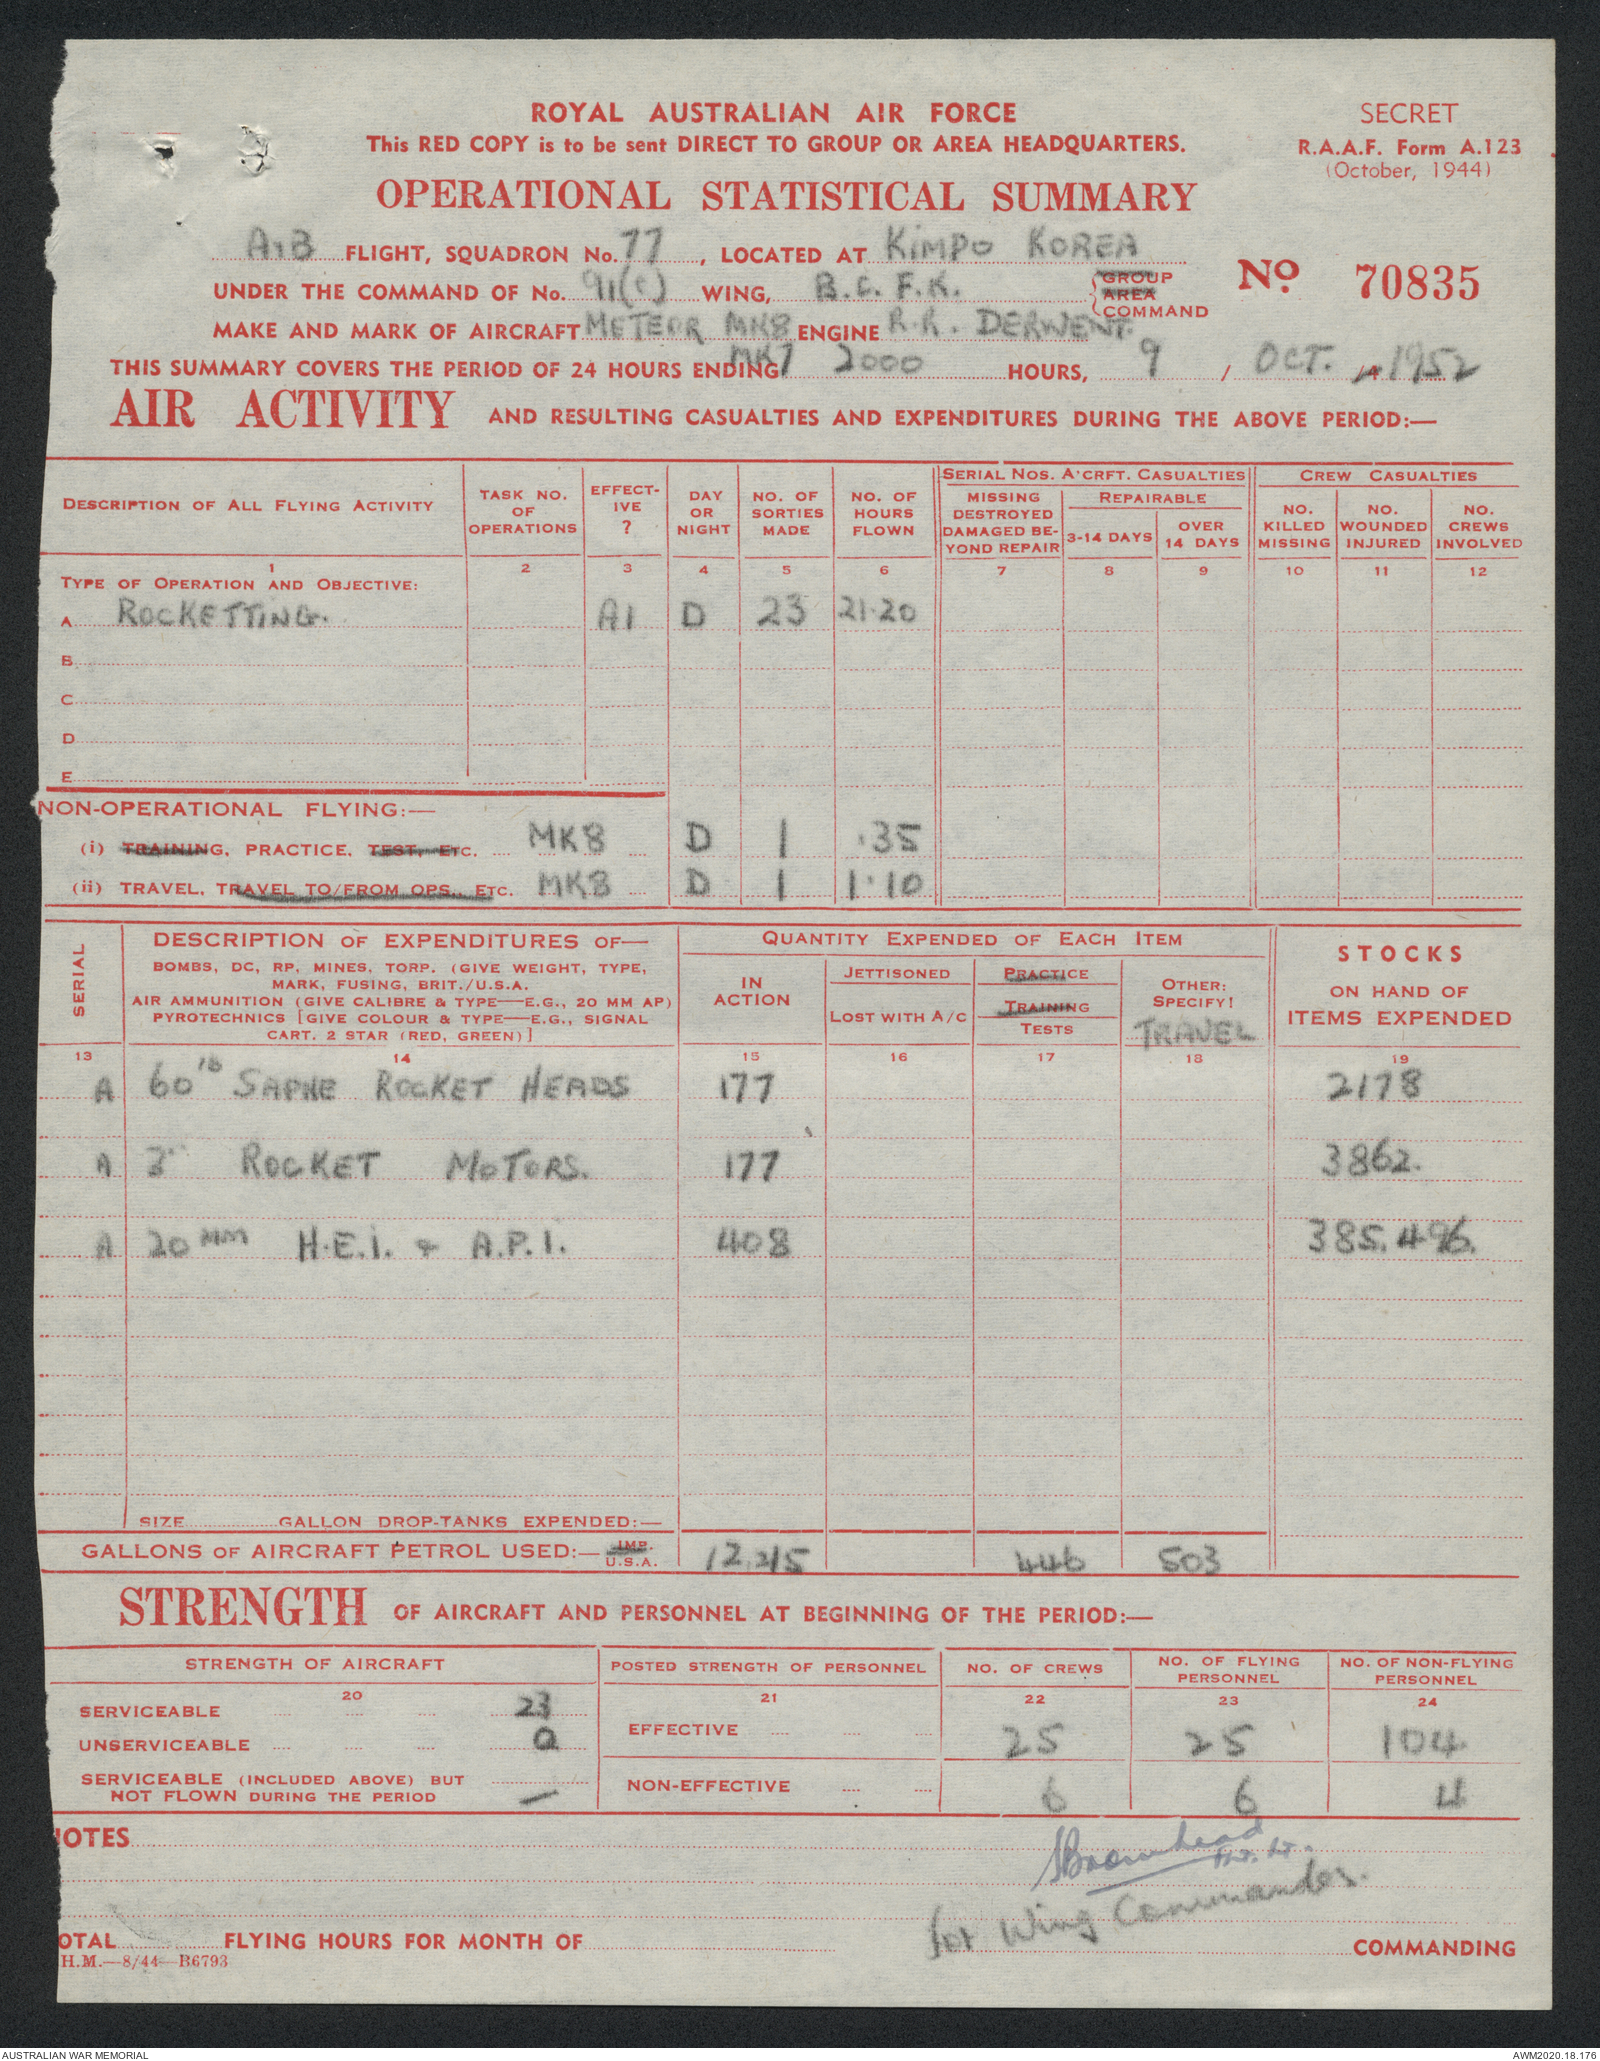 ROYAL AUSTRALIAN AIR FORCE
This RED COPY is to be sent DIRECT TO GROUP OR AREA HEADQUARTERS.
SECRET
R.A.A.F. Form A.123
(October, 1944)
OPERATIONAL STATISTICAL SUMMARY
A,B FLIGHT, SQUADRON No. 77, LOCATED AT KIMPO KOREA
UNDER THE COMMAND OF No. 91(C) WING, B.C.F.K. GROUP AREA COMMAND
No. 70835
MAKE AND MARK OF AIRCRAFT METEOR MK8 ENGINE R.R. DERWENT. MK7
THIS SUMMARY COVERS THE PERIOD OF 24 HOURS ENDING 2000 HOURS, 9 / OCT. / 1952
AIR ACTIVITY AND RESULTING CASUALTIES AND EXPENDITURES DURING THE ABOVE PERIOD:—
DESCRIPTION OF ALL FLYING ACTIVITY
TASK NO. OF OPERATIONS
EFFECTIVE ?
DAY OR NIGHT
NO. OF SORTIES MADE
NO. OF HOURS FLOWN
SERIAL NOS. A'CRFT. CASUALTIES
MISSING DESTROYED DAMAGED BEYOND REPAIR
REPAIRABLE
3-14 DAYS
OVER 14 DAYS
CREW CASUALTIES
NO. KILLED MISSING
NO. WOUNDED INJURED
NO. CREWS INVOLVED
1 2 3 4 5 6 7 8 9 10 11 12
TYPE OF OPERATION AND OBJECTIVE:
A ROCKETTING. A1 D 23 21.20
B
C
D
E
NON-OPERATIONAL FLYING:—
(i) TRAINING, PRACTICE, TEST, ETC. MK8 D 1 .35
(ii) TRAVEL, TRAVEL TO/FROM OPS., ETC. MK8 D 1 1.10
SERIAL
DESCRIPTION OF EXPENDITURES OF—
BOMBS, DC, RP, MINES, TORP. (GIVE WEIGHT, TYPE,
MARK, FUSING, BRIT./U.S.A.
AIR AMMUNITION (GIVE CALIBRE & TYPE—E.G., 20 MM AP)
PYROTECHNICS [GIVE COLOUR & TYPE—E.G., SIGNAL
CART. 2 STAR (RED, GREEN)]
QUANTITY EXPENDED OF EACH ITEM
IN ACTION
JETTISONED
LOST WITH A/C
PRACTICE
TRAINING
TESTS
OTHER: SPECIFY!
TRAVEL
STOCKS
ON HAND OF
ITEMS EXPENDED
13 14 15 16 17 18 19
A 60 lb SAPHE ROCKET HEADS 177 2178
A 3" ROCKET MOTORS. 177 3862.
A 20 MM H.E.I. & A.P.I. 408 385,496.
SIZE GALLON DROP-TANKS EXPENDED:—
GALLONS OF AIRCRAFT PETROL USED:— IMP. U.S.A. 12,215 446 503
STRENGTH OF AIRCRAFT AND PERSONNEL AT BEGINNING OF THE PERIOD:—
STRENGTH OF AIRCRAFT
POSTED STRENGTH OF PERSONNEL
NO. OF CREWS
NO. OF FLYING PERSONNEL
NO. OF NON-FLYING PERSONNEL
20 21 22 23 24
SERVICEABLE 23
UNSERVICEABLE 0
SERVICEABLE (INCLUDED ABOVE) BUT
NOT FLOWN DURING THE PERIOD —
EFFECTIVE 25 25 104
NON-EFFECTIVE 6 6 4
NOTES
SBromhead
Flt. Lt.
for Wing Commander.
OTAL FLYING HOURS FOR MONTH OF COMMANDING
H.M.—8/44—B6793
AUSTRALIAN WAR MEMORIAL
AWM2020.18.176